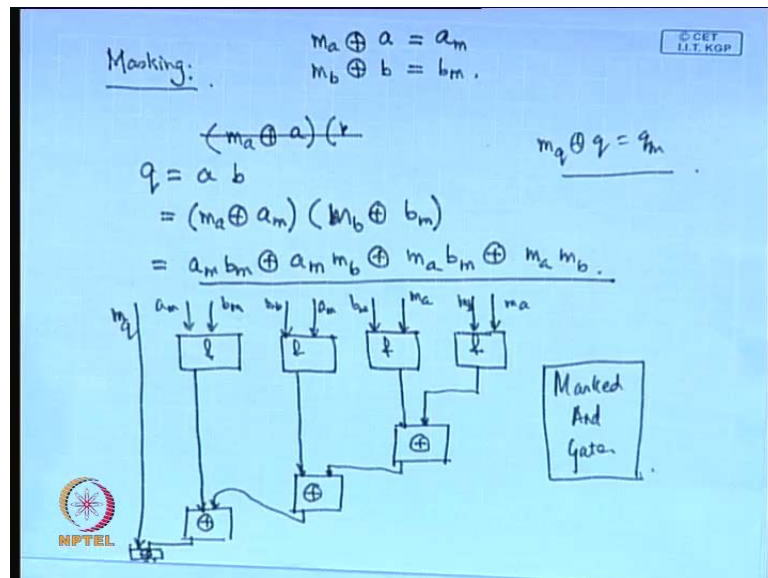 m_a ⊕ a = a_m
© CET
I.I.T. KGP
Masking:
m_b ⊕ b = b_m.
(m_a ⊕ a) (
m_q ⊕ q = q_m
q = a b
= (m_a ⊕ a_m) (m_b ⊕ b_m)
= a_m b_m ⊕ a_m m_b ⊕ m_a b_m ⊕ m_a m_b.
m_q a_m b_m m_b a_m b_m m_a m_b m_a
& & & &
Masked
And
Gate.
⊕
⊕
⊕
NPTEL
⊕